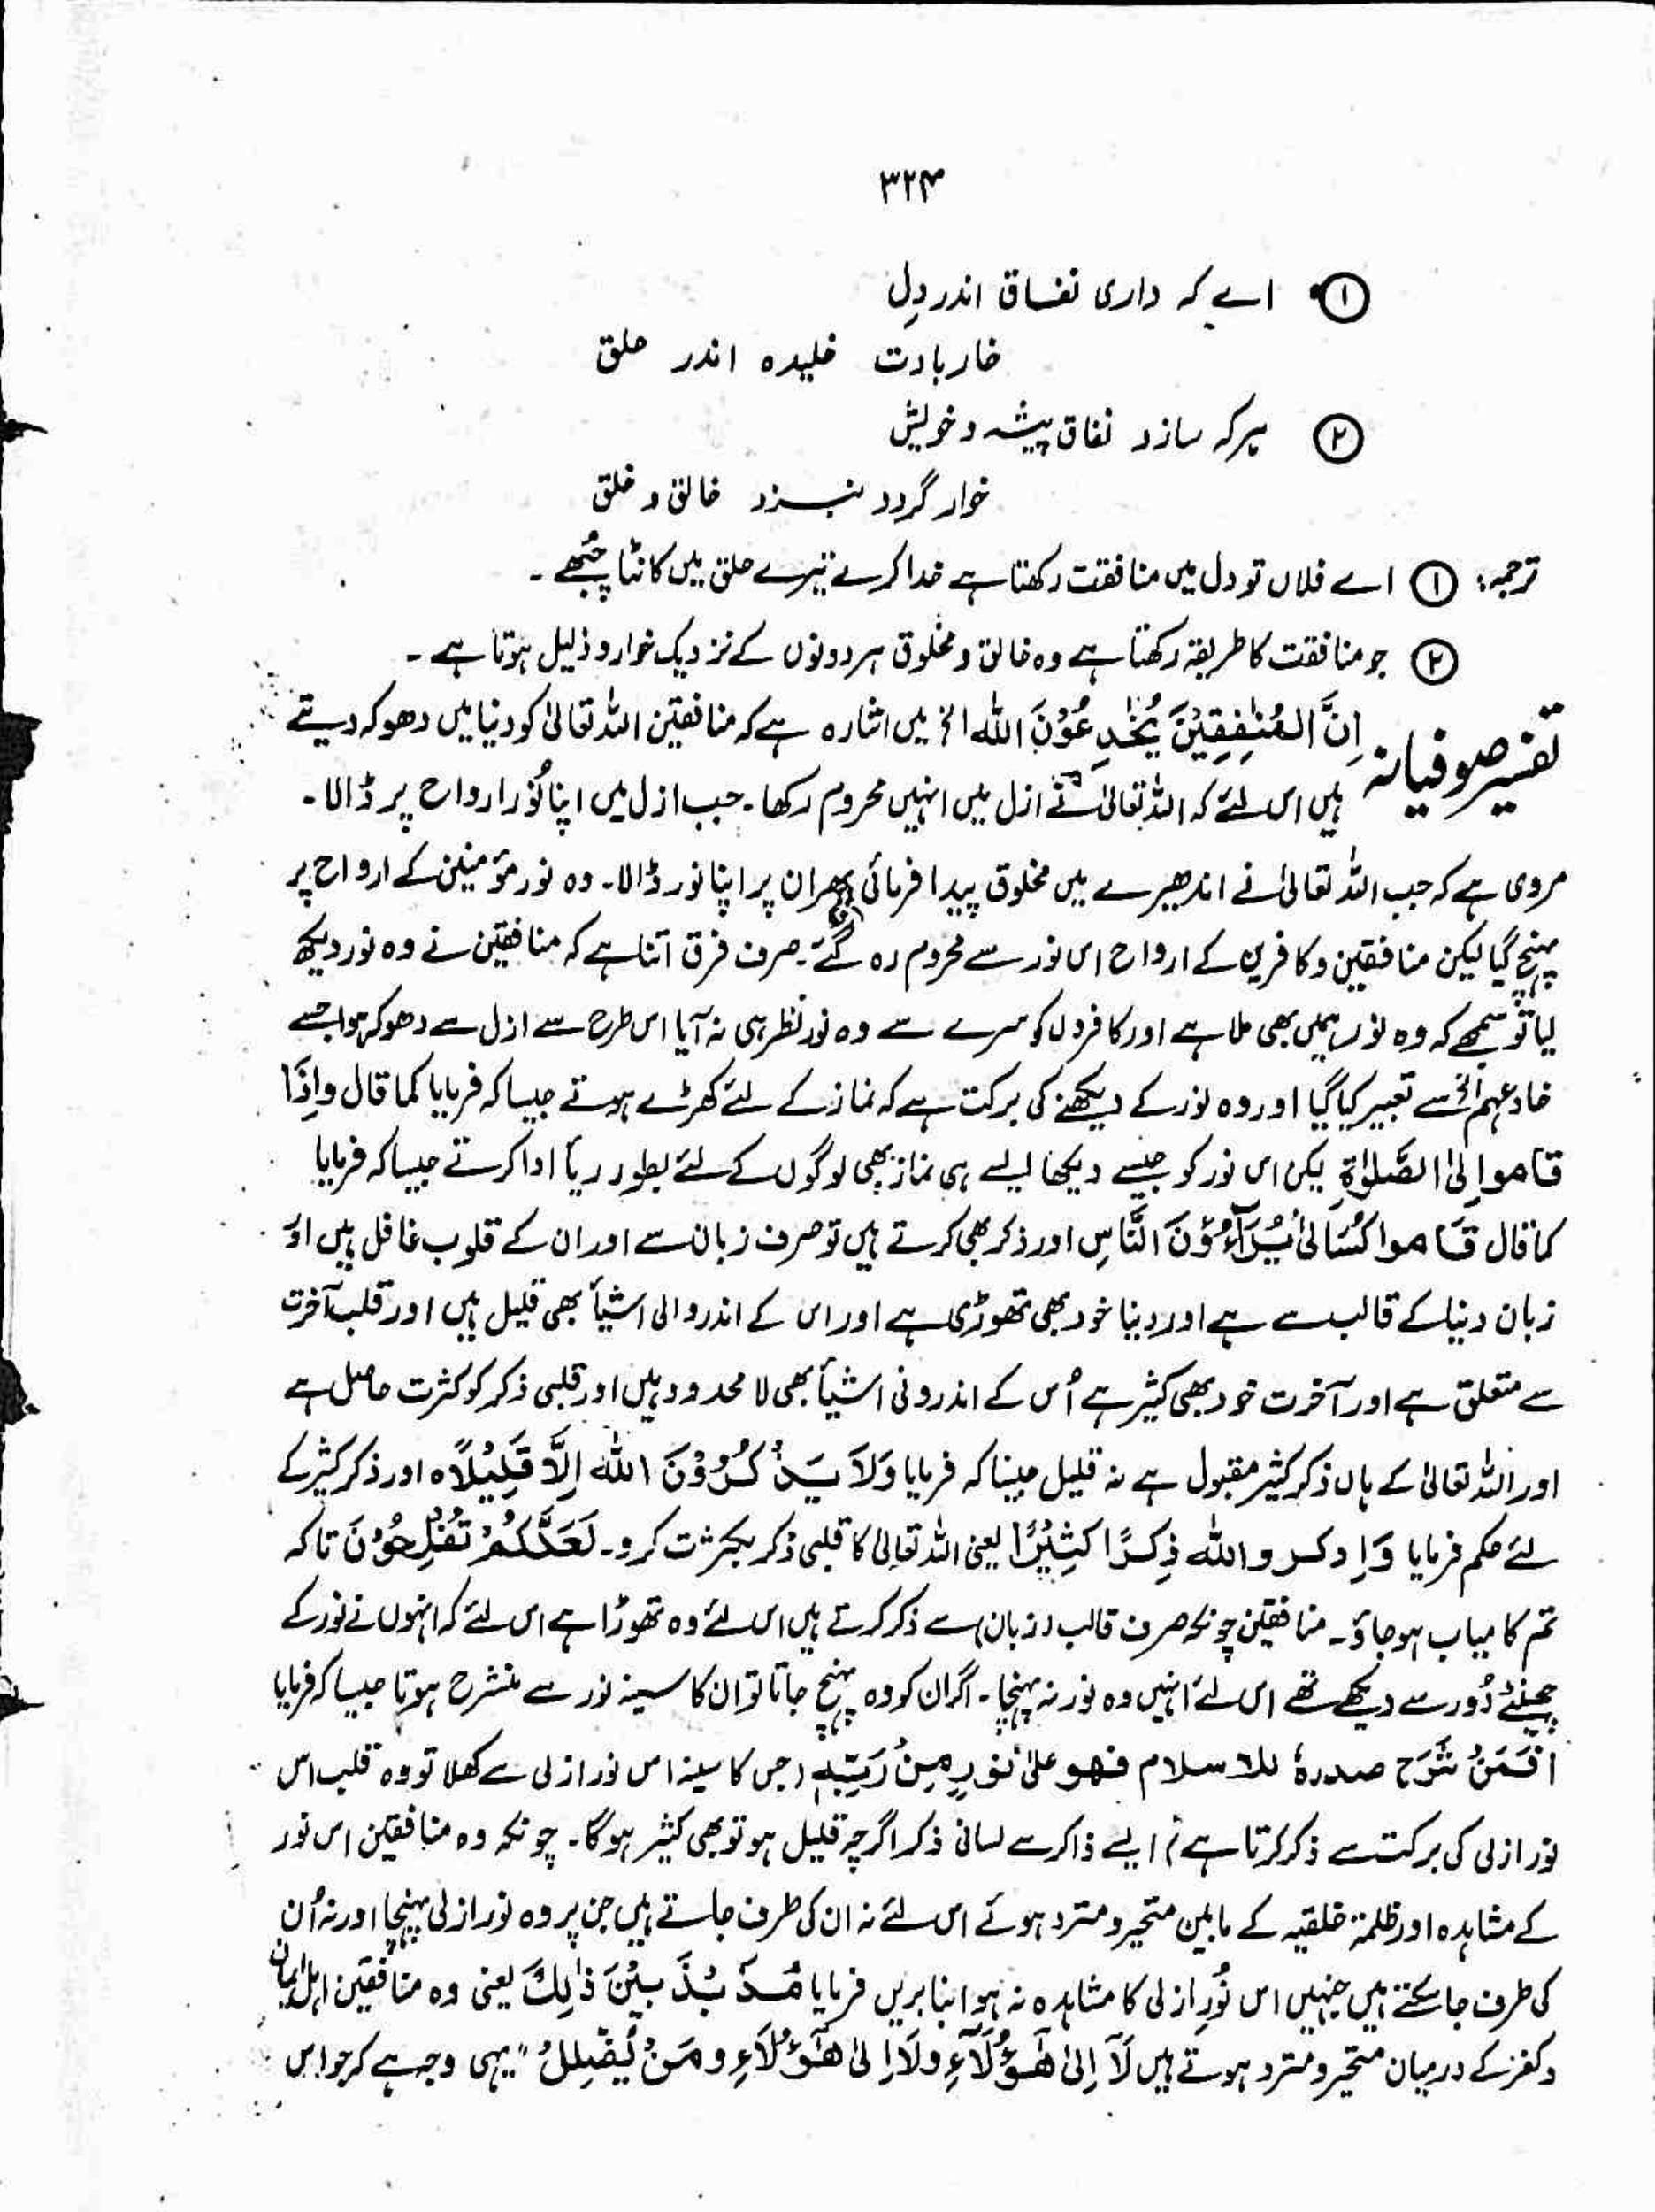 ۳۲۴
① اے کہ داری نفاق اندر دل
خار بادت خلیدہ اندر حلق
② ہر کہ سازد نفاق پیشہ و خویش
خوار گردد بنزد خالق و خلق
ترجمہ: ① اے فلاں تو دل میں منافقت رکھتا ہے خدا کرے تیرے حلق میں کانٹا چُبھے ۔
② جو منافقت کا طریقہ رکھتا ہے وہ خالق و مخلوق ہر دونوں کے نزدیک خوار و ذلیل ہوتا ہے ۔
تفسیر صوفیانہ اِنَّ الْمُنٰفِقِیْنَ یُخٰدِعُوْنَ اللہ الخ میں اشارہ ہے کہ منافقین اللہ تعالیٰ کو دنیا میں دھوکہ دیتے
ہیں اس لئے کہ اللہ تعالیٰ نے ازل میں انہیں محروم رکھا ۔ جب ازل میں اپنا نُور ارواح پر ڈالا ۔
مروی ہے کہ جب اللہ تعالیٰ نے اندھیرے میں مخلوق پیدا فرمائی پھر ان پر اپنا نور ڈالا ۔ وہ نور مؤمنین کے ارواح پر
پہنچ گیا لیکن منافقین و کافرین کے ارواح اس نور سے محروم رہ گئے ۔ صرف فرق اتنا ہے کہ منافقین نے وہ نور دیکھ
لیا تو سمجھے کہ وہ نور ہمیں بھی ملا ہے اور کافروں کو سرے سے وہ نور نظر ہی نہ آیا اس طرح سے ازل سے دھوکہ ہوا جسے
خادعہم الخ سے تعبیر کیا گیا اور وہ نور کے دیکھنے کی برکت ہے کہ نماز کے لئے کھڑے ہوتے جیسا کہ فرمایا کما قال واِذَا
قاموا اِلیٰ الصَّلوٰۃِ لیکن اس نور کو جیسے دیکھا ایسے ہی نماز بھی لوگوں کے لئے بطور ریأ ادا کرتے جیسا کہ فرمایا
کما قال قَاموا کُسَالیٰ یُرَآءُوْنَ النَّاسِ اور ذکر بھی کرتے ہیں تو صرف زبان سے اور ان کے قلوب غافل ہیں اور
زبان دنیا کے قالب سے ہے اور دنیا خود بھی تھوڑی ہے اور اس کے اندر والی اشیأ بھی قلیل ہیں اور قلب آخرت
سے متعلق ہے اور آخرت خود بھی کثیر ہے اُس کے اندرونی اشیأ بھی لا محدود ہیں اور قلبی ذکر کو کثرت حاصل ہے
اور اللہ تعالیٰ کے ہاں ذکر کثیر مقبول ہے نہ قلیل جیسا کہ فرمایا وَلاَ یَذْکُرُوْنَ اللہَ اِلَّا قَلِیْلًاہ اور ذکر کثیر کے
لئے حکم فرمایا وَاِدکروا اللہ ذِکرًا کثِیْرًا یعنی اللہ تعالیٰ کا قلبی ذکر بکثرت کرو ۔ لَعَلَّکُمْ تُفْلِحُوْنَ تاکہ
تم کامیاب ہو جاؤ ۔ منافقین چونکہ صرف قالب (زبان) سے ذکر کرتے ہیں اس لئے وہ تھوڑا ہے اس لئے کہ انہوں نے نور کے
چھینٹے دُور سے دیکھے تھے اس لئے انہیں وہ نور نہ پہنچا ۔ اگر ان کو وہ پہنچ جاتا تو ان کا سینہ نور سے منشرح ہوتا جیسا کہ فرمایا
افَمَنْ شَرَح صدرہٗ للاسلام فھو علیٰ نورٍ مِنْ رَبِّہٖ (جس کا سینہ اس نور ازلی سے کھلا تو وہ قلب اس
نور ازلی کی برکت سے ذکر کرتا ہے) ایسے ذاکر سے لسانی ذکر اگرچہ قلیل ہو تو بھی کثیر ہو گا ۔ چونکہ وہ منافقین اس نور
کے مشاہدہ اور ظلمۃ خلقیہ کے مابین متحیر و مترد ہوئے اس لئے نہ ان کی طرف جاتے ہیں جن پر وہ نور ازلی پہنچا اور نہ اُن
کی طرف جا سکتے ہیں جنہیں اس نُورِ ازلی کا مشاہدہ نہ ہوا بنا بریں فرمایا مُذَبْذَ بیْنَ ذٰلِکَ یعنی وہ منافقین اہل ایمان
و کفر کے درمیان متحیر و مترد ہوتے ہیں لَآ اِلیٰ ھٰٓؤُلَآءِ ولَا اِلیٰ ھٰٓؤُلَآءِ ومَنْ یُضْلِلْ" یہی وجہ ہے کہ جو اس